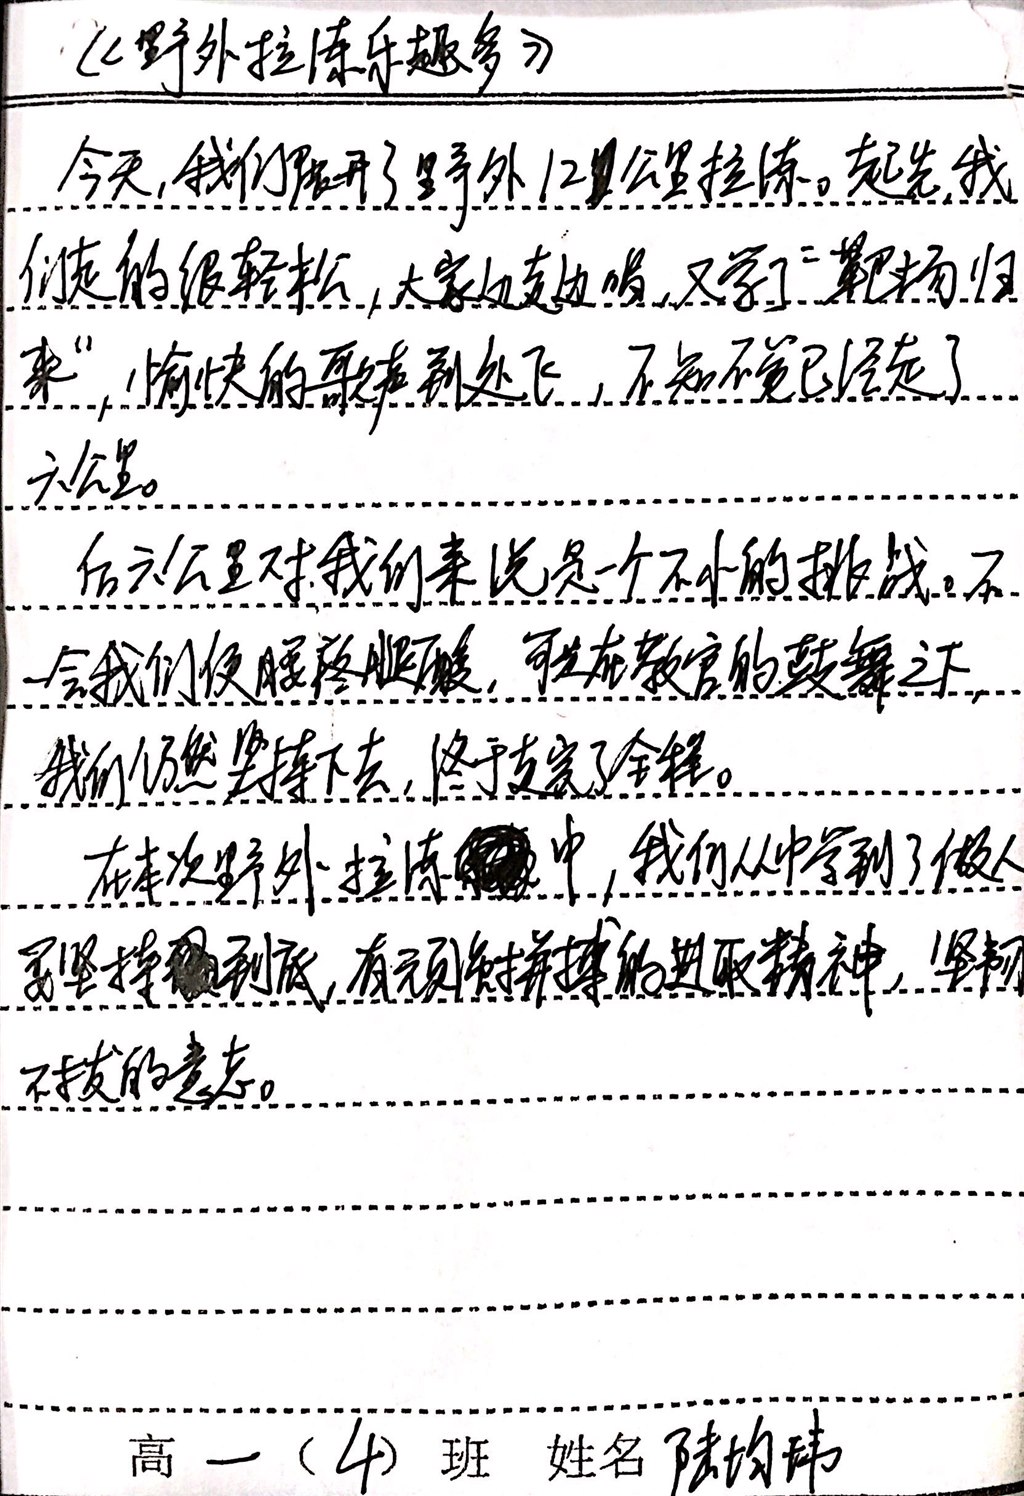 《野外拉练乐趣多》
今天,我们展开了野外12公里拉练。起先,我
们走的很轻松,大家边走边唱,又学了“靶场归
来”,愉快的歌声到处飞,不知不觉已经走了
六公里。
后六公里对我们来说是一个不小的挑战。不
一会我们便腰疼腿酸,可是在教官的鼓舞之下,
我们仍然坚持下去,终于走完了全程。
在本次野外拉练中,我们从中学到了做人
要坚持到底,有顽强拼搏的进取精神,坚韧
不拔的意志。
高一(4)班 姓名 陆均玮